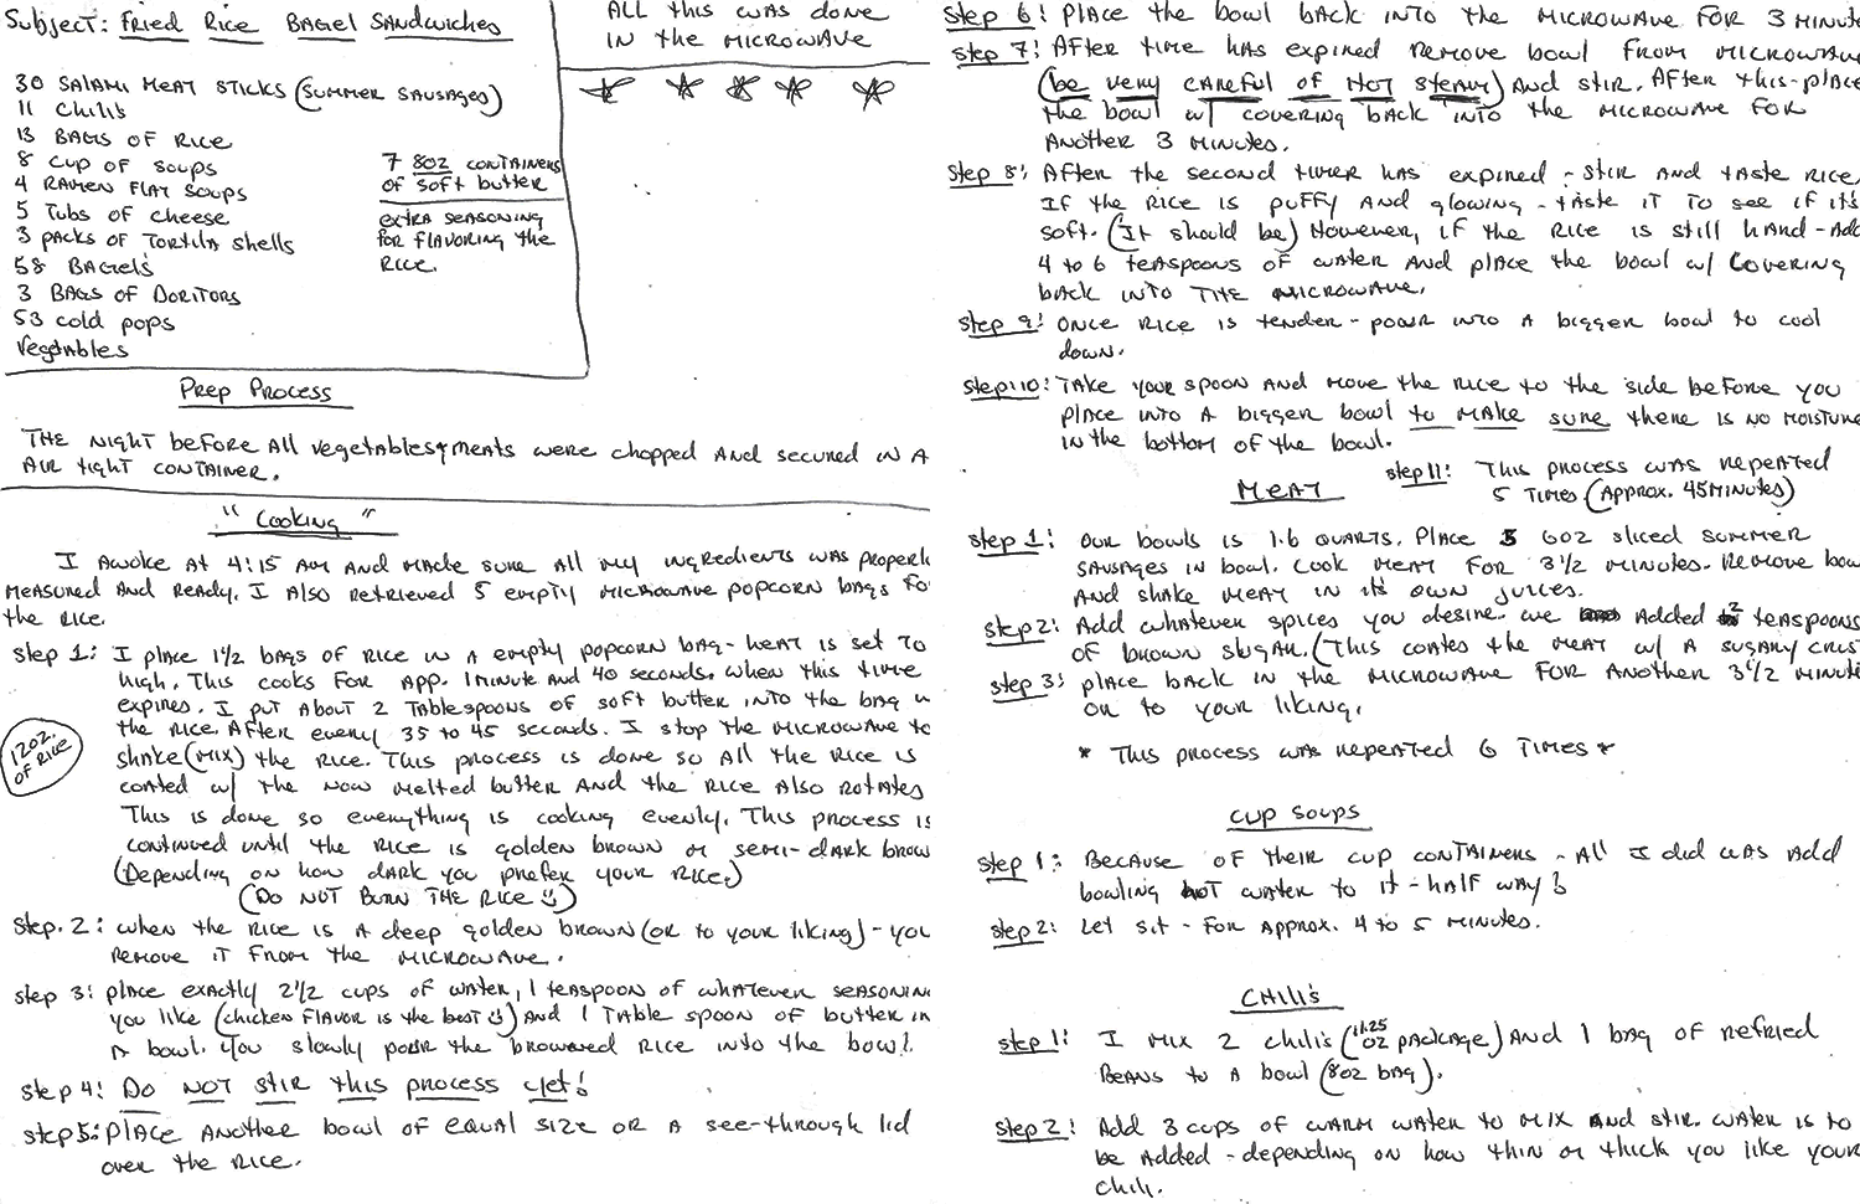 Subject: Fried Rice Bagel Sandwiches
30 Salami meat sticks (summer sausages)
11 Chili's
13 Bags of Rice
8 Cup of soups
4 Ramen flat soups
5 Tubs of cheese
3 packs of Tortila shells
58 Bagels
3 Bags of Doritors
53 cold pops
Vegetables
7 8oz containers
of soft butter
extra seasoning
for flavoring the
Rice.
All this was done
in the microwave
Prep Process
The night before all vegetables & meats were chopped and secured in a
air tight container.
"Cooking"
I awoke at 4:15 am and made sure all my ingredients was properl
measured and ready. I also retrieved 5 empty microwave popcorn bags fo
the rice.
step 1: I place 1½ bags of rice in a empty popcorn bag - heat is set to
high. This cooks for app. 1 minute and 40 seconds. When this time
expires. I put about 2 Tablespoons of soft butter into the bag w
the rice. After every 35 to 45 seconds. I stop the microwave to
shake (mix) the rice. This process is done so all the rice is
coated w/ the now melted butter and the rice also rotates
This is done so everything is cooking evenly. This process is
continued until the rice is golden brown or semi-dark brow
(Depending on how dark you prefer your rice.)
(Do not burn the rice ☺)
12oz.
of rice
step. 2: when the rice is a deep golden brown (or to your liking) - you
remove it from the microwave.
step 3: place exactly 2½ cups of water, 1 teaspoon of whatever seasonin
you like (chicken flavor is the best ☺) and 1 Table spoon of butter in
a bowl. You slowly pour the browned rice into the bowl.
step 4: Do not stir this process yet!
step 5: Place another bowl of equal size or a see-through lid
over the rice.
Step 6: Place the bowl back into the microwave for 3 minute
step 7: After time has expired remove bowl from microwave
(be very careful of hot steam) and stir. After this - place
the bowl w/ covering back into the microwave for
another 3 minutes.
Step 8: After the second timer has expired - stir and taste rice.
If the rice is puffy and glowing - taste it to see if its
soft. (It should be) However, if the rice is still hard - add
4 to 6 teaspoons of water and place the bowl w/ covering
back into the microwave.
step 9: Once rice is tender - pour into a bigger bowl to cool
down.
step: 10: Take your spoon and move the rice to the side before you
place into a bigger bowl to make sure there is no moisture
in the bottom of the bowl.
step 11: This process was repeated
5 times (Approx. 45 minutes)
Meat
step 1: Our bowls is 1.6 quarts. Place 5 6oz sliced summer
sausages in bowl. Cook meat for 3½ minutes. Remove bow
and shake meat in its own juices.
step 2: Add whatever spices you desire. We added 2 teaspoons
of brown sugar. (This coates the meat w/ a sugary cris
step 3: place back in the microwave for another 3½ minute
or to your liking.
* This process was repeated 6 times *
Cup Soups
step 1: Because of their cup containers - all I did was add
bowling hot water to it - half way!
step 2: Let sit - for approx. 4 to 5 minutes.
Chili's
step 1: I mix 2 chili's (11.25 oz package) and 1 bag of refried
beans to a bowl (8oz bag).
step 2: Add 3 cups of warm water to mix and stir. Water is to
be added - depending on how thin or thick you like your
chili.